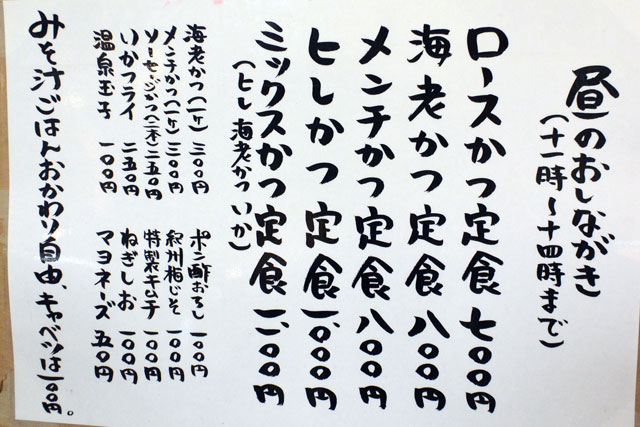 昼のおしながき
(十一時〜十四時まで)
ロースかつ定食 七〇〇円
海老かつ定食 八〇〇円
メンチかつ定食 八〇〇円
ヒレかつ定食 一、〇〇〇円
ミックスかつ定食 一、一〇〇円
(ヒレ 海老かつ いか)
海老かつ(一ケ) 三〇〇円
メンチかつ(一ケ) 三〇〇円
ソーセージかつ(二本) 二五〇円
いかフライ 二五〇円
温泉玉子 一〇〇円
ポン酢おろし 一〇〇円
紀州梅じそ 一〇〇円
特製キムチ 一〇〇円
ねぎしお 一〇〇円
マヨネーズ 五〇円
みそ汁ごはんおかわり自由、キャベツは一〇〇円。